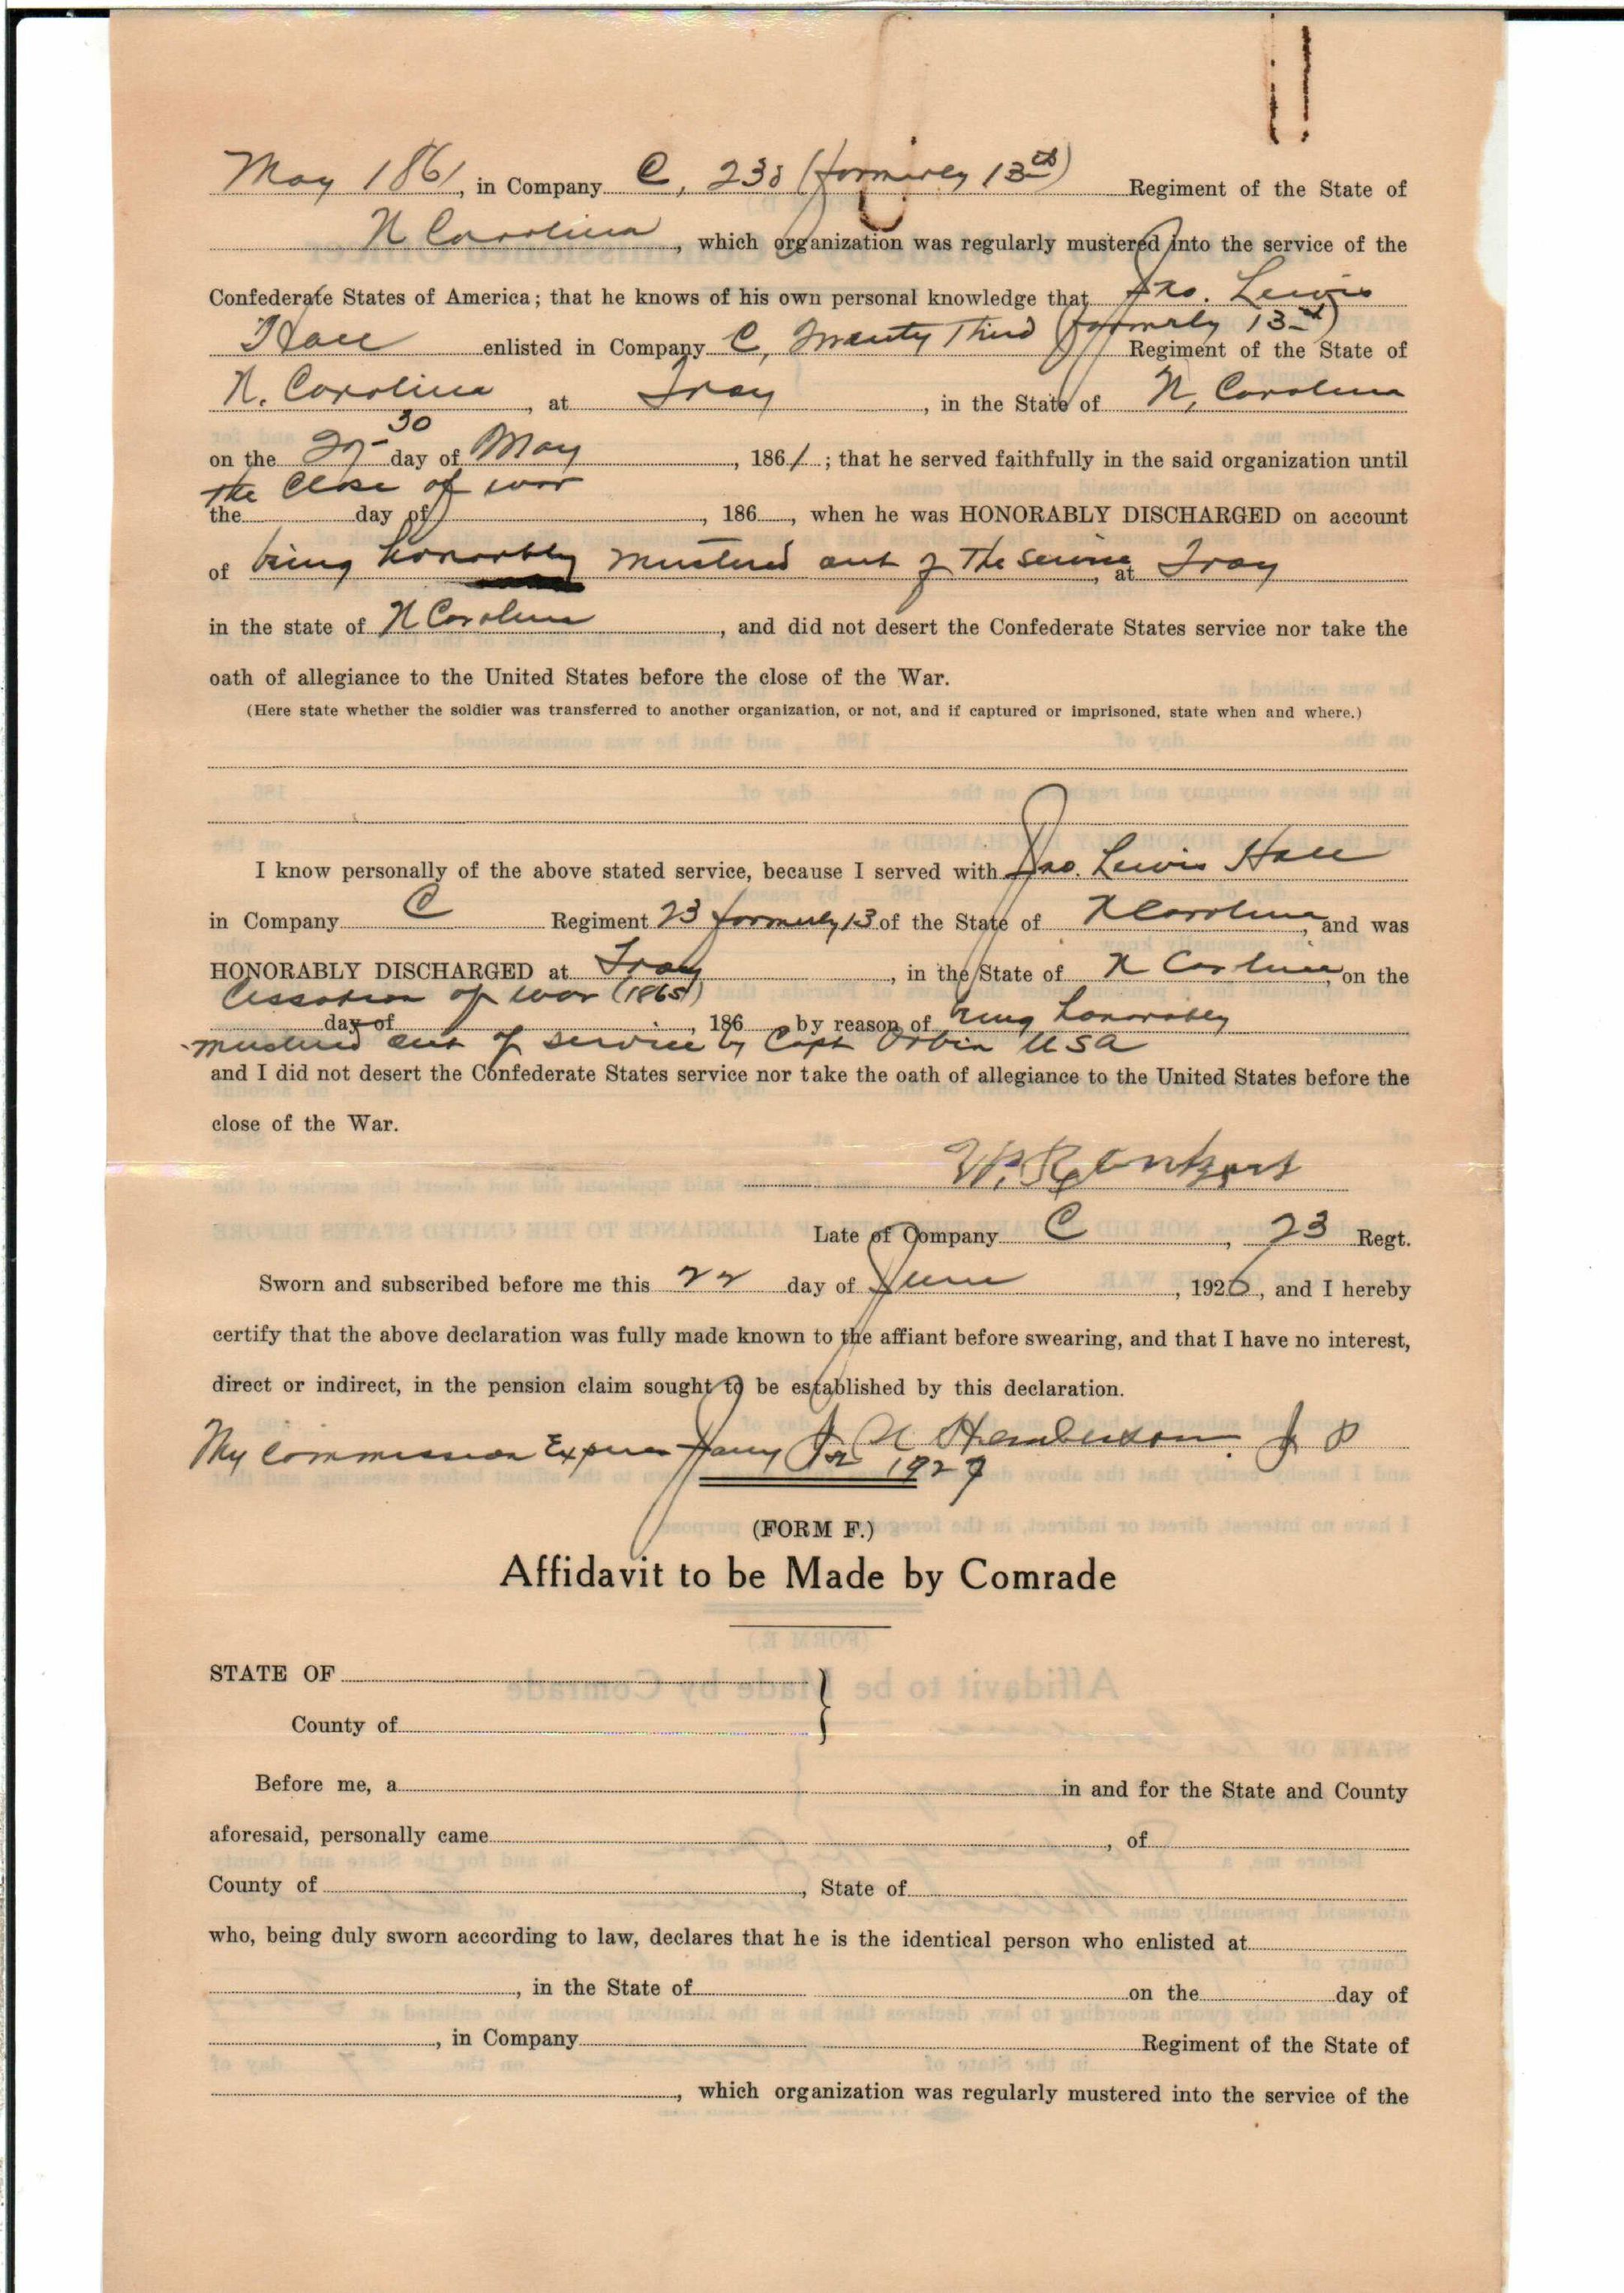 May 1861, in Company C, 23d (formerly 13th) Regiment of the State of
N Carolina, which organization was regularly mustered into the service of the
Confederate States of America; that he knows of his own personal knowledge that Jno. Lewis
Hall enlisted in Company C, Twenty Third (formerly 13th) Regiment of the State of
N. Carolina, at Troy, in the State of N, Carolina
30
on the day of May, 1861; that he served faithfully in the said organization until
the Close of war
the day of, 186, when he was HONORABLY DISCHARGED on account
of being honorably mustered out of the service, at Troy
in the state of N Carolina, and did not desert the Confederate States service nor take the
oath of allegiance to the United States before the close of the War.
(Here state whether the soldier was transferred to another organization, or not, and if captured or imprisoned, state when and where.)
I know personally of the above stated service, because I served with Jno. Lewis Hall
in Company C Regiment 23 formerly 13 of the State of N Carolina, and was
HONORABLY DISCHARGED at Troy, in the State of N Carolina, on the
Cessation of war (1865)
day of, 186 by reason of being honorably
mustered out of service by Capt Orbin USA
and I did not desert the Confederate States service nor take the oath of allegiance to the United States before the
close of the War.
Late of Company C, 23 Regt.
Sworn and subscribed before me this 22 day of June, 1926, and I hereby
certify that the above declaration was fully made known to the affiant before swearing, and that I have no interest,
direct or indirect, in the pension claim sought to be established by this declaration.
My commission Expires Henderson J P
1927
(FORM F.)
Affidavit to be Made by Comrade
STATE OF
County of
Before me, a in and for the State and County
aforesaid, personally came, of
County of, State of
who, being duly sworn according to law, declares that he is the identical person who enlisted at
, in the State of on the day of
, in Company Regiment of the State of
, which organization was regularly mustered into the service of the